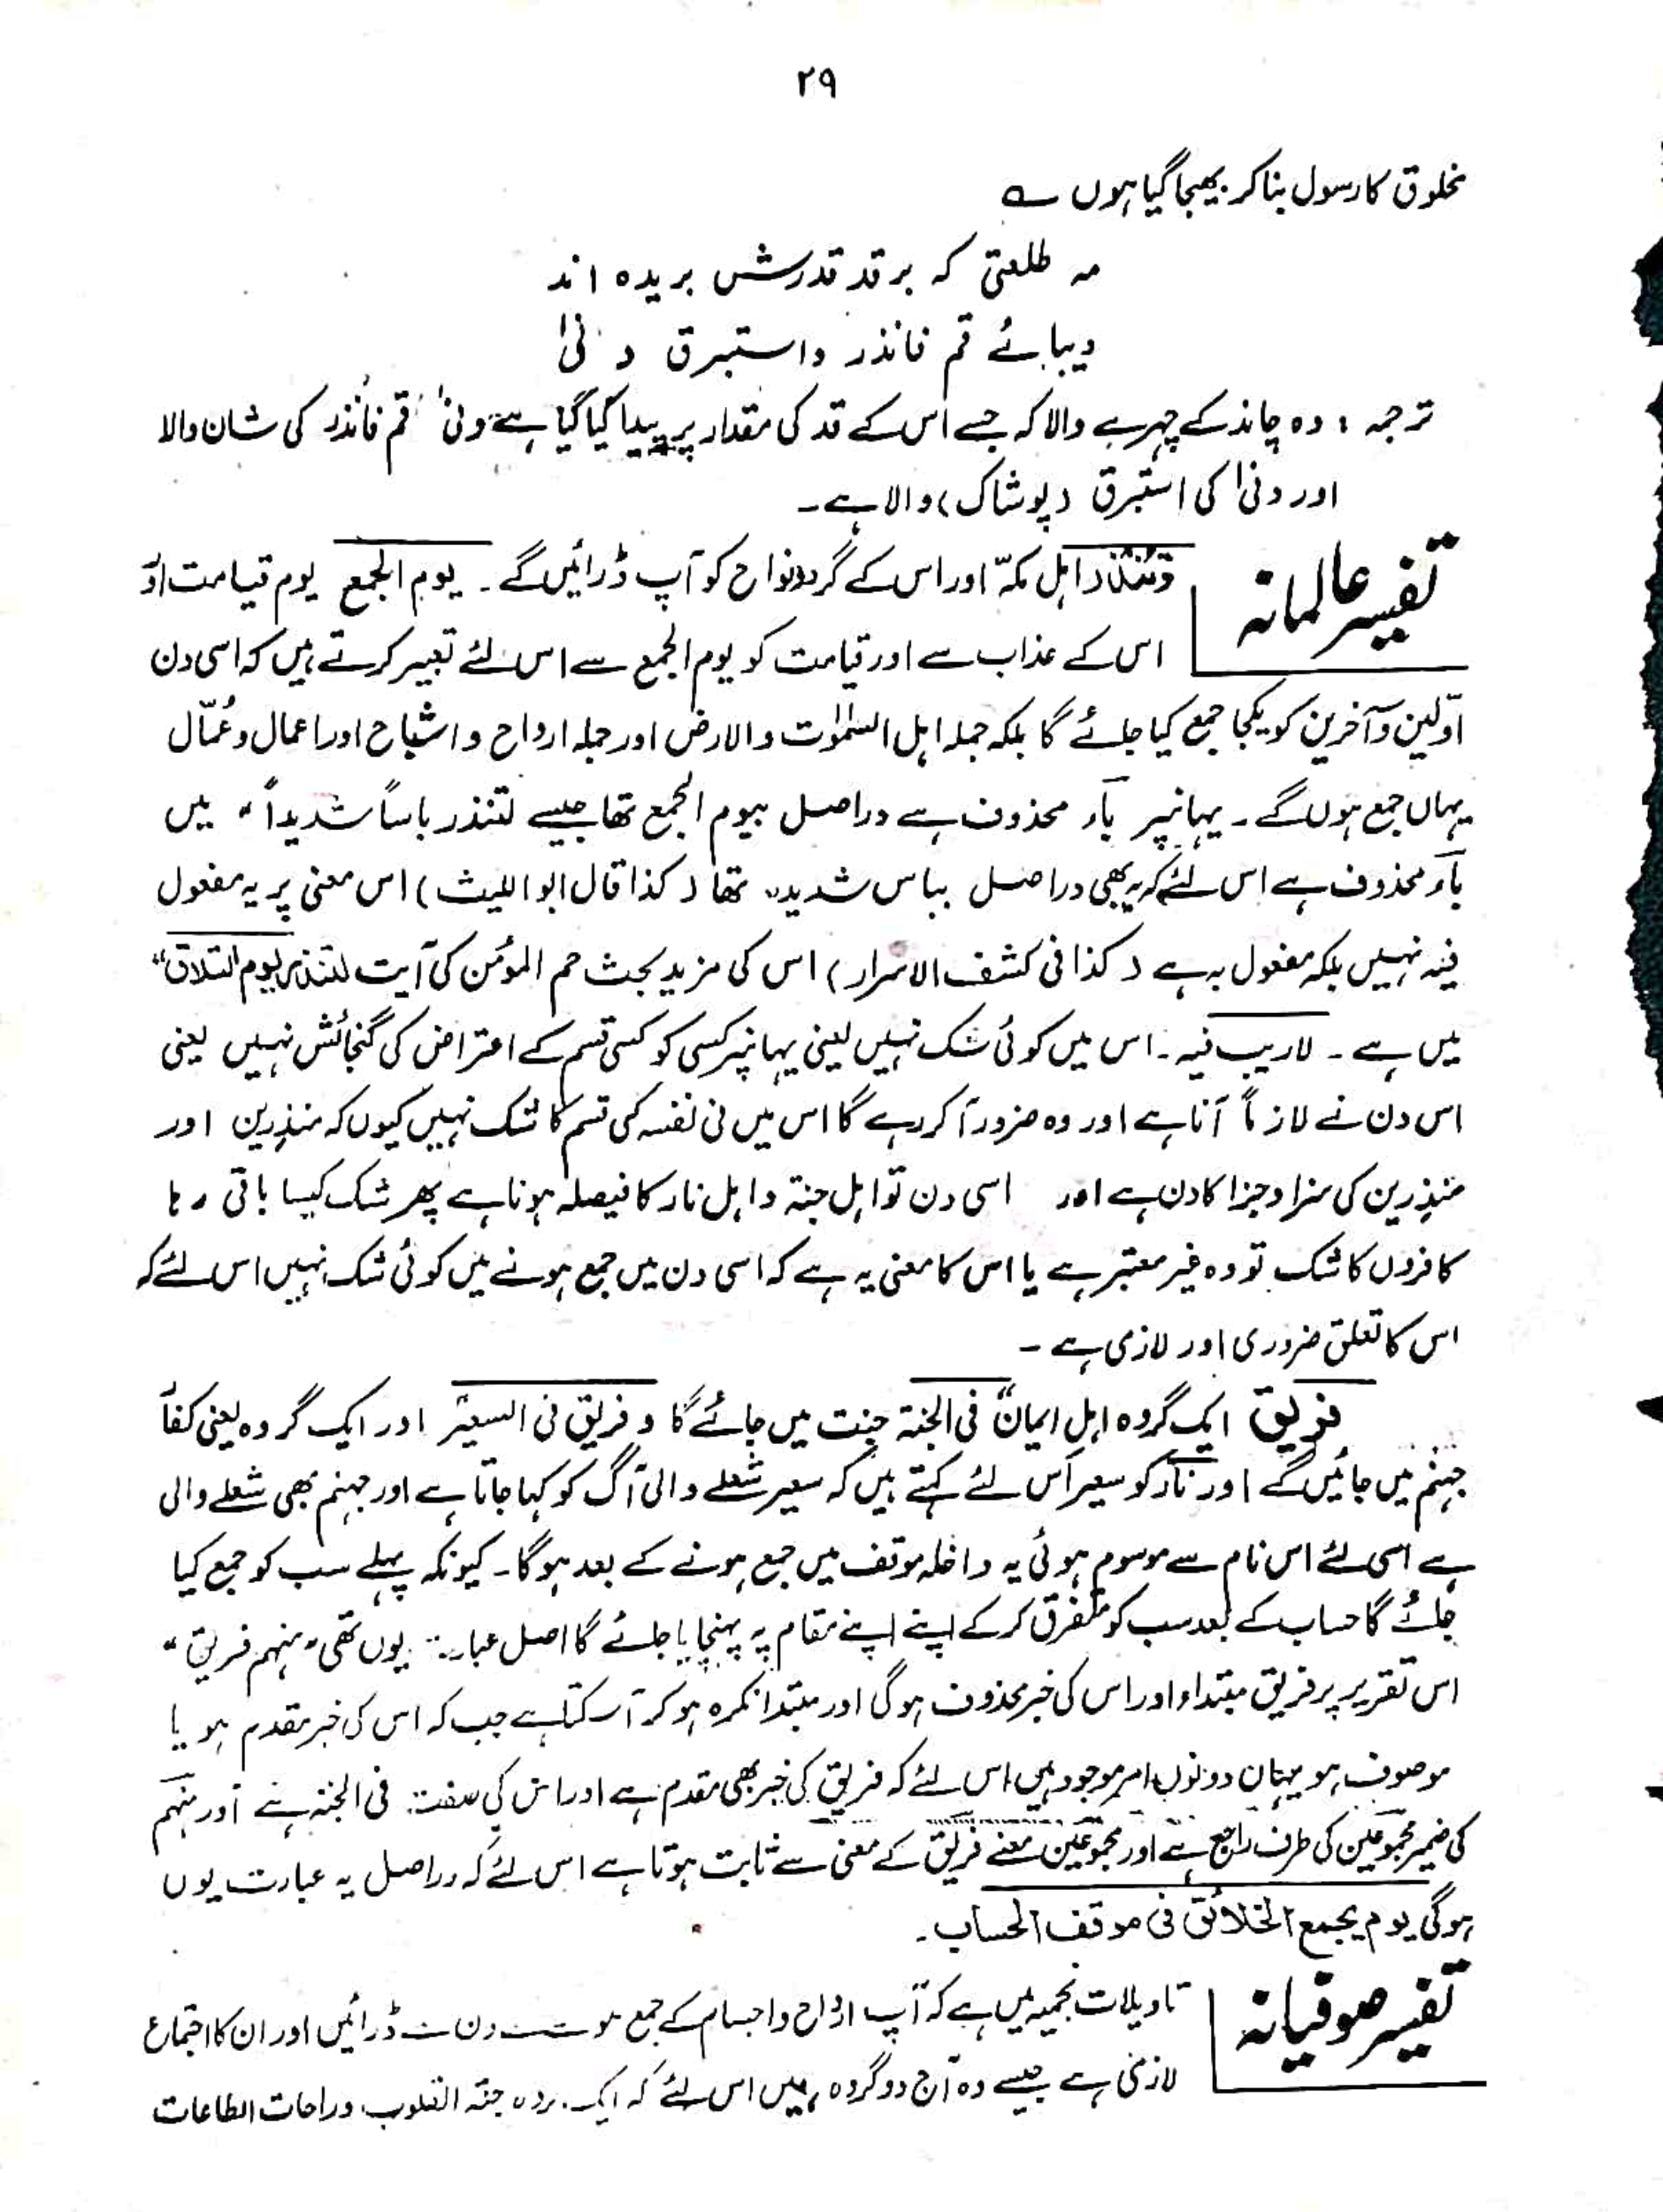 ۲۹
مخلوق کا رسول بنا کر بھیجا گیا ہوں ؎
مہ طلعتی کہ بر قد قدرش بریدہ اند
دیبائے قم فانذر واستبرق دنیٰ
ترجمہ : وہ چاند کے چہرے والا کہ جسے اس کے قد کی مقدار پر پیدا کیا گیا ہے قم فانذر کی شان والا
اور دنیٰ کی استبرق (پوشاک) والا ہے۔
تفسیر عالمانہ
وتنذر اہل مکہّ اور اس کے گردونواح کو آپ ڈرائیں گے۔ یوم الجمع یوم قیامت اور
اس کے عذاب سے اور قیامت کو یوم الجمع سے اس لئے تعبیر کرتے ہیں کہ اسی دن
اوّلین وآخرین کو یکجا جمع کیا جائے گا بلکہ جملہ اہل السمٰوٰت والارض اور جملہ ارواح و اشباح اور اعمال وعُمّال
یہاں جمع ہوں گے۔ یہانپر بآر محذوف ہے دراصل بیوم الجمع تھا جیسے لتنذر باساً شدیداً " میں
بآر محذوف ہے اس لئے کہ یہ بھی دراصل بباس شدید" تھا (کذا قال ابو اللیث) اس معنی پر یہ مفعول
فیہ نہیں بلکہ مفعول بہ ہے (کذا فی کشف الاسرار) اس کی مزید بحث حم المؤمن کی آیت لتنذر یوم التلاق"
میں ہے۔ لاریب فیہ۔ اس میں کوئی شک نہیں یعنی یہانپر کسی کو کسی قسم کے اعتراض کی گنجائش نہیں یعنی
اس دن نے لازماً آنا ہے اور وہ ضرور آ کر رہے گا اس میں فی نفسہ کسی قسم کا شک نہیں کیوں کہ منذِرین اور
منذرین کی سزا و جزا کا دن ہے اور اسی دن تو اہل جنۃ و اہل نار کا فیصلہ ہونا ہے پھر شک کیسا باقی رہا
کافروں کا شک تو وہ غیر معتبر ہے یا اس کا معنی یہ ہے کہ اسی دن میں جمع ہونے میں کوئی شک نہیں اس لئے کہ
اس کا تعلق ضروری اور لازمی ہے ۔
فریق ایک گروہ اہل ایمان" فی الجنۃ جنت میں جائے گا وفریق فی السعیر اور ایک گروہ یعنی کفار
جہنم میں جائیں گے اور نآر کو سعیر اس لئے کہتے ہیں کہ سعیر شعلے والی آگ کو کہا جاتا ہے اور جہنم بھی شعلے والی
ہے اسی لئے اس نام سے موسوم ہوئی یہ داخلہ موقف میں جمع ہونے کے بعد ہوگا۔ کیونکہ پہلے سب کو جمع کیا
جائے گا حساب کے بعد سب کو متفرق کر کے اپنے اپنے مقام پہ پہنچایا جائے گا اصل عبارت یوں تھی " منہم فریق "
اس تقریر پر فریق مبتداء اور اس کی خبر محذوف ہوگی اور مبتدا نکرہ ہو کر آ سکتا ہے جب کہ اس کی خبر مقدم ہو یا
موصوف ہو یہاں دونوں امر موجود ہیں اس لئے کہ فریق کی خبر بھی مقدم ہے اور اس کی صفت فی الجنۃ ہے اور منہم
کی ضمیر مجموعین کی طرف راجع ہے اور مجموعین معنے فریق کے معنی سے ثابت ہوتا ہے اس لئے کہ دراصل یہ عبارت یوں
ہوگی یوم یجمع الخلائق فی موقف الحساب۔
تفسیر صوفیانہ
تاویلات نجمیہ میں ہے کہ آپ ارواح واجسام کے جمع دن ڈرائیں اور ان کا اجتماع
لازمی ہے جیسے وہ آج دو گروہ ہیں اس لئے کہ ایک جنۃ القلوب وراحات الطاعات